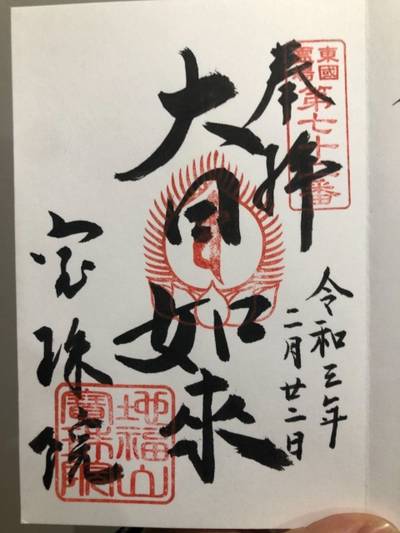 東國
第七十
番
奉拝
大日如來
宝珠院
令和三年
二月廿二日
地福山
寶珠院